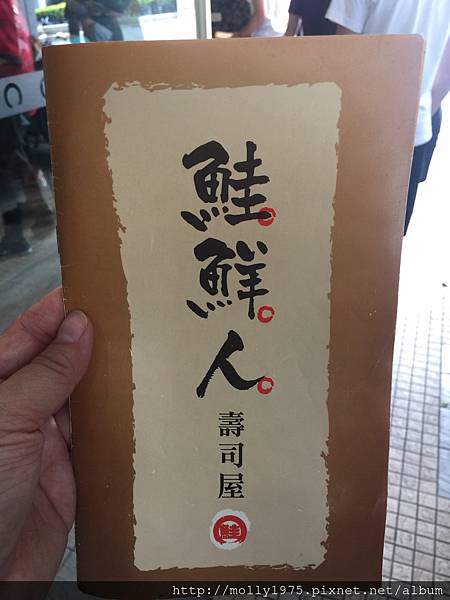 鮭鮮人
壽司屋
鮭
http://molly1975.pixnet.net/album